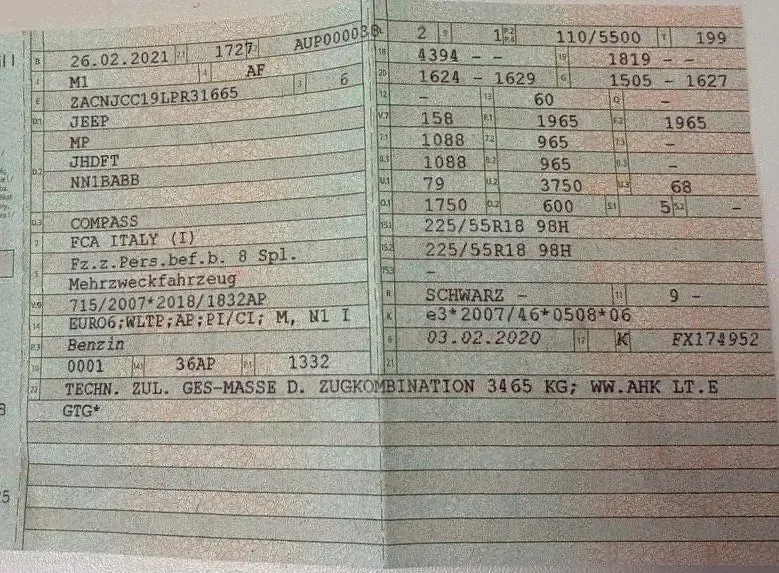 B 26.02.2021 2.1 1727 AUP000038
J M1 4 AF
E ZACNJCC19LPR31665 3 6
D.1 JEEP
MP
D.2 JHDFT
NN1BABB
D.3 COMPASS
2 FCA ITALY (I)
5 Fz.z.Pers.bef.b. 8 Spl.
Mehrzweckfahrzeug
V.9 715/2007*2018/1832AP
14 EURO6;WLTP;AP;PI/CI; M, N1 I
P.3 Benzin
10 0001 14.1 36AP P.1 1332
L 2 9 1 P.2 P.4 110/5500 T 199
18 4394 - - 19 1819 - -
20 1624 - 1629 G 1505 - 1627
12 - 13 60 Q -
V.7 158 F.1 1965 F.2 1965
7.1 1088 7.2 965 7.3 -
8.1 1088 8.2 965 8.3 -
U.1 79 U.2 3750 U.3 68
O.1 1750 O.2 600 S.1 5 S.2 -
15.1 225/55R18 98H
15.2 225/55R18 98H
15.3 -
R SCHWARZ - 11 9 -
K e3*2007/46*0508*06
6 03.02.2020 17 K FX174952
21
22 TECHN. ZUL. GES-MASSE D. ZUGKOMBINATION 3465 KG; WW.AHK LT.E
GTG*